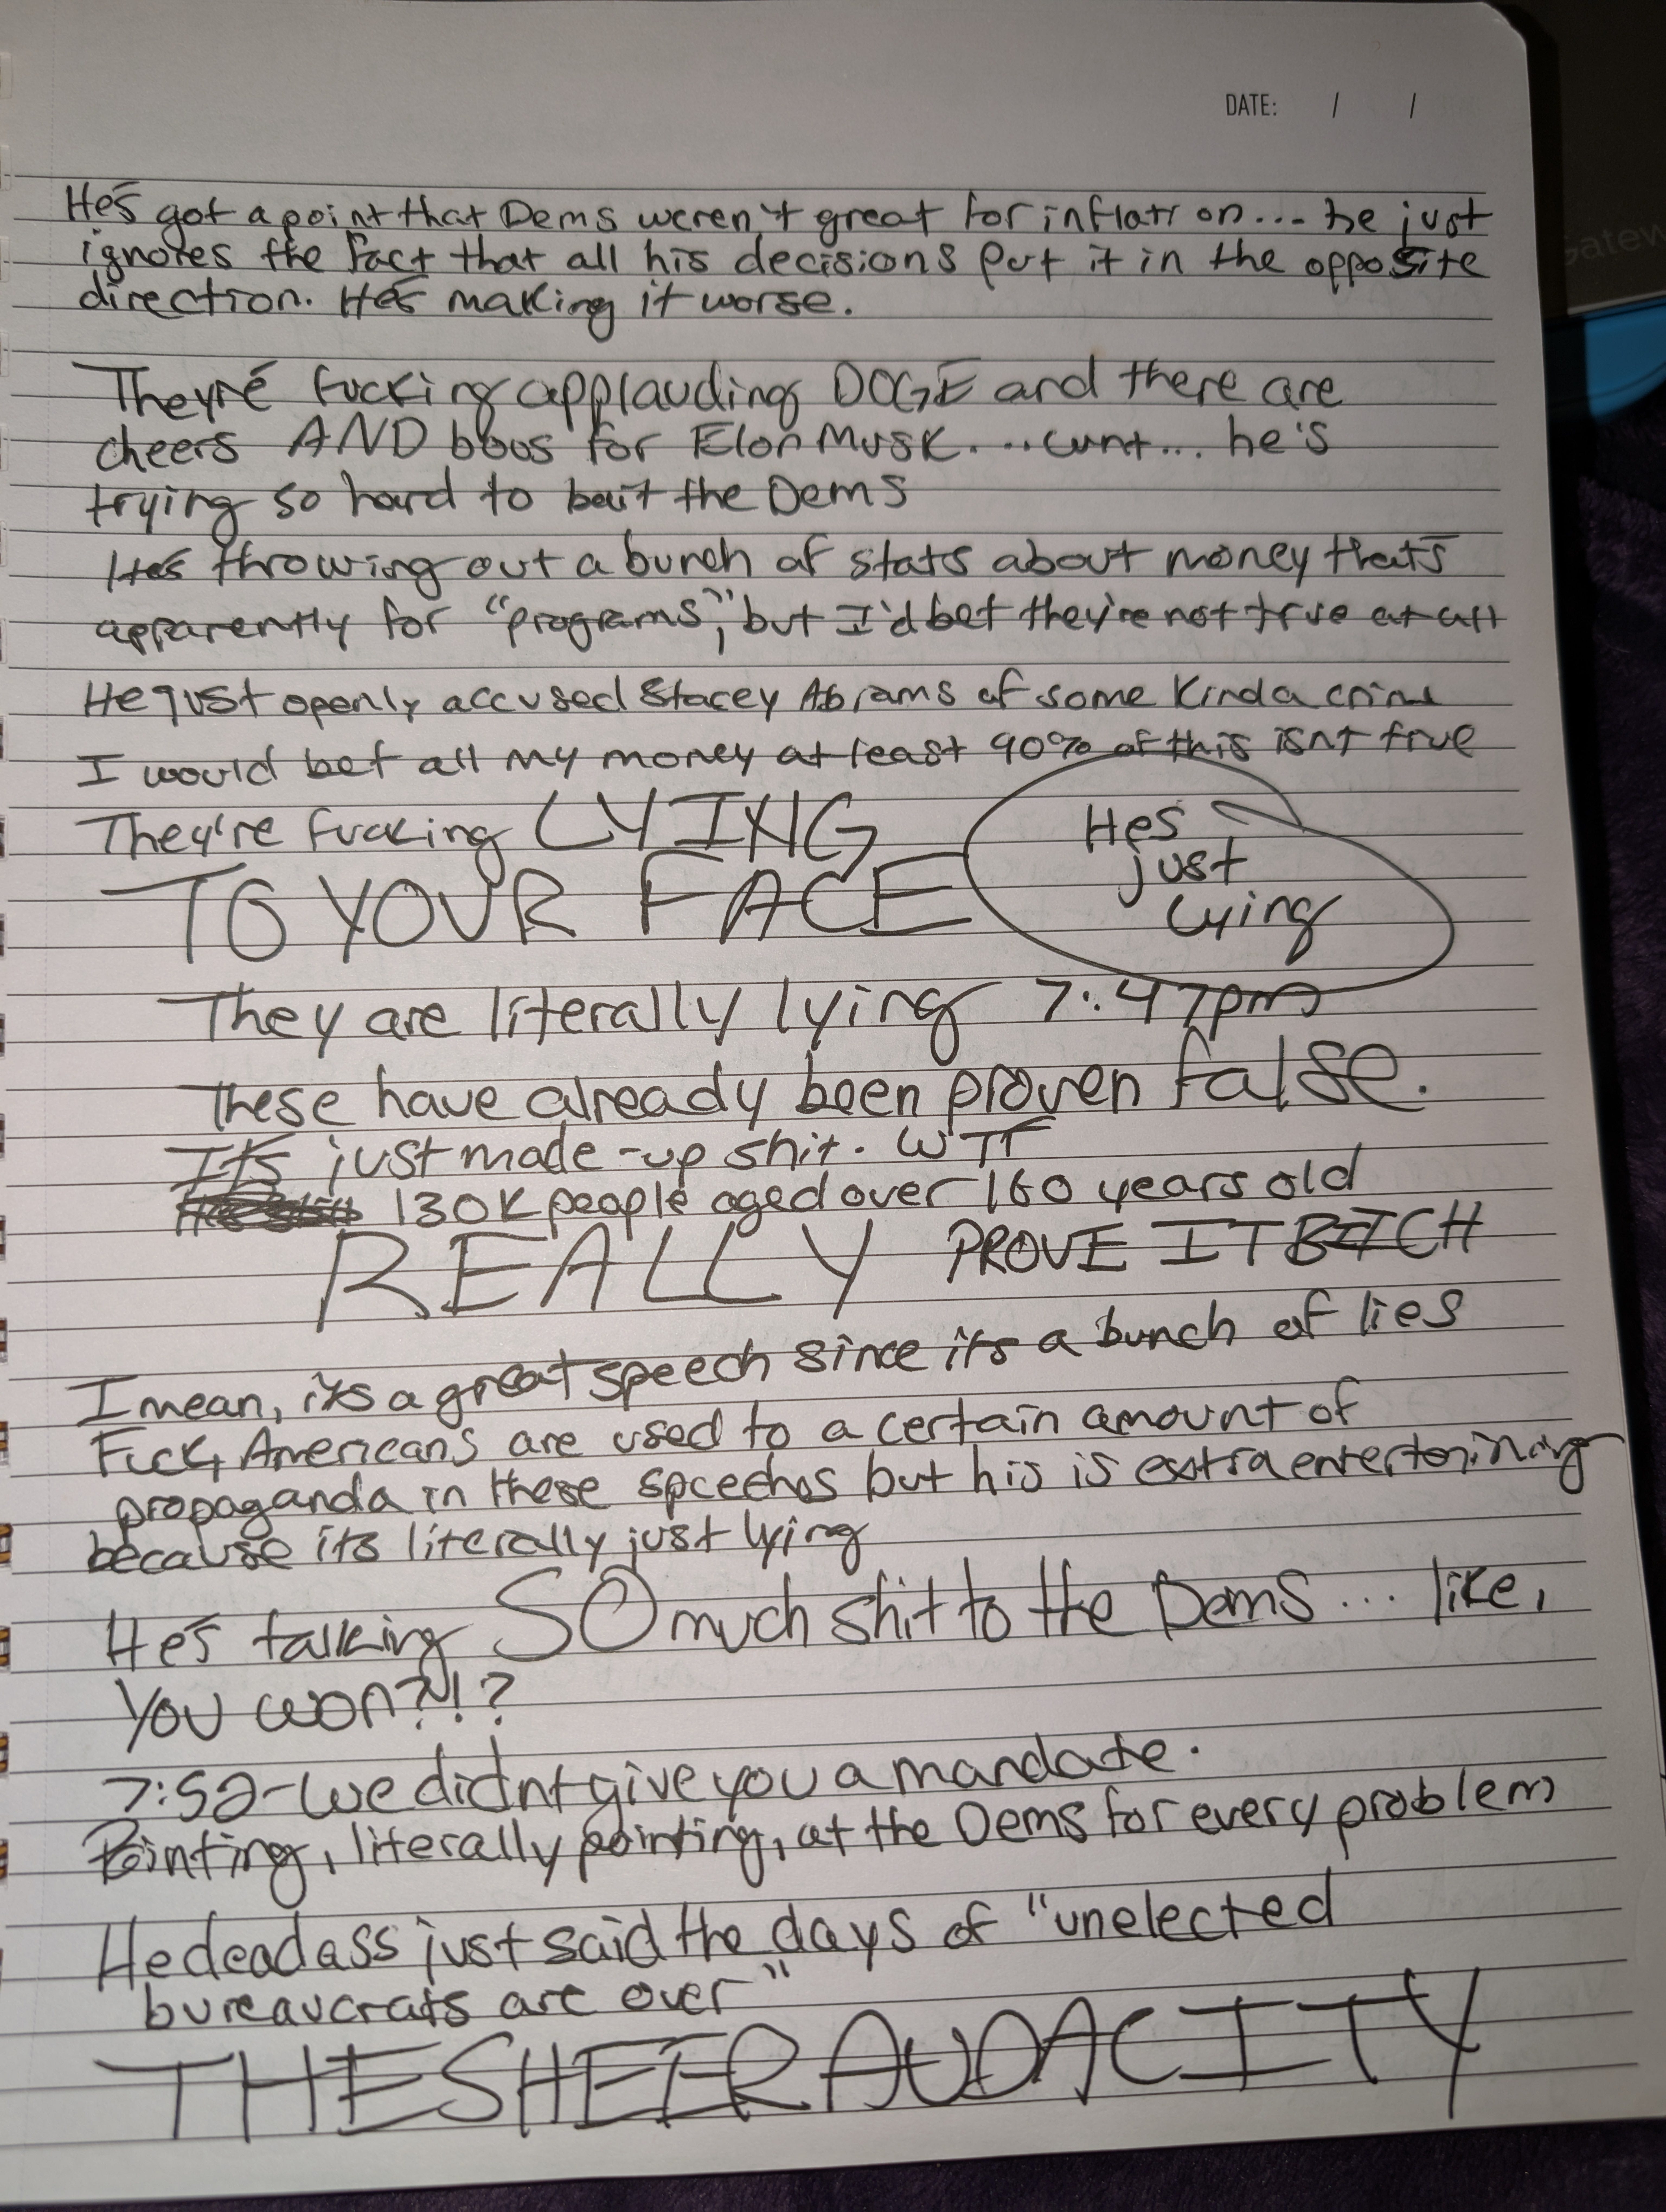 DATE: / /
He's got a point that Dems weren't great for inflation... he just
ignores the fact that all his decisions put it in the opposite
direction. He's making it worse.
They're fucking applauding DOGE and there are
cheers AND boos for Elon Musk. ... cunt... he's
trying so hard to bait the Dems
He's throwing out a bunch of stats about money that's
apparently for "programs," but I'd bet they're not true at all
He just openly accused Stacey Abrams of some kinda crime
I would bet all my money at least 90% of this isnt true
They're fucking LYING
TO YOUR FACE
Hes
just
lying
They are literally lying 7:47pm
These have already been proven false.
It's just made-up shit. WTF
130K people aged over 160 years old
REALLY PROVE IT BITCH
I mean, its a great speech since its a bunch of lies
Fuck, Americans are used to a certain amount of
propaganda in these speeches but his is extra entertaining
because its literally just lying
He's talking SO much shit to the Dems... like,
YOU WON?!!?
7:52-we didnt give you a mandate.
Pointing, literally pointing, at the Dems for every problem
He deadass just said the days of "unelected
bureaucrats are over"
THE SHEER AUDACITY